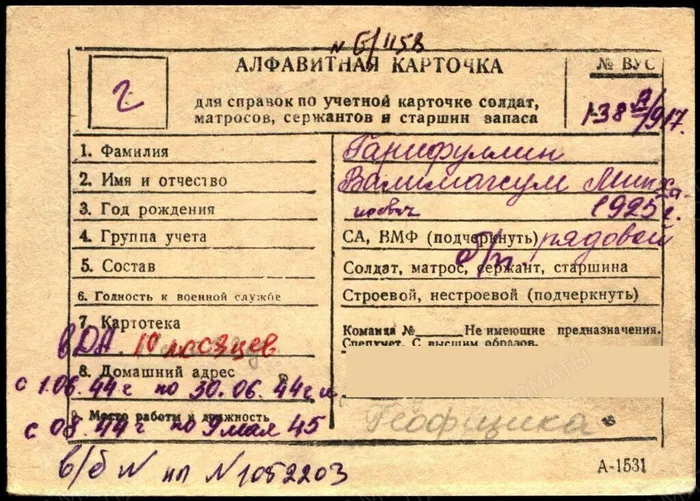 № Б/1158
АЛФАВИТНАЯ КАРТОЧКА
№ ВУС
2
для справок по учетной карточке солдат,
матросов, сержантов и старшин запаса
1. Фамилия
Гарифуллин
2. Имя и отчество
Валимагсум Минха
3. Год рождения
нович 1925 г.
4. Группа учета
СА, ВМФ (подчеркнуть) рядовой
5. Состав
б/п.
Солдат, матрос, сержант, старшина
6. Годность к военной службе
Строевой, нестроевой (подчеркнуть)
7. Картотека
Команда № Не имеющие предназначения.
Спецучет. С высшим образов.
вДА. 10 месяцев
8. Домашний адрес
с 1.06.44г по 30.06.44г и
9. Место работы и должность
с 08.44г по 9 мая 45
в/б № нп №1082203
А-1531